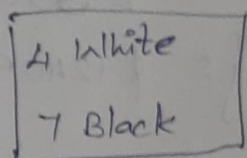 4 White
7 Black